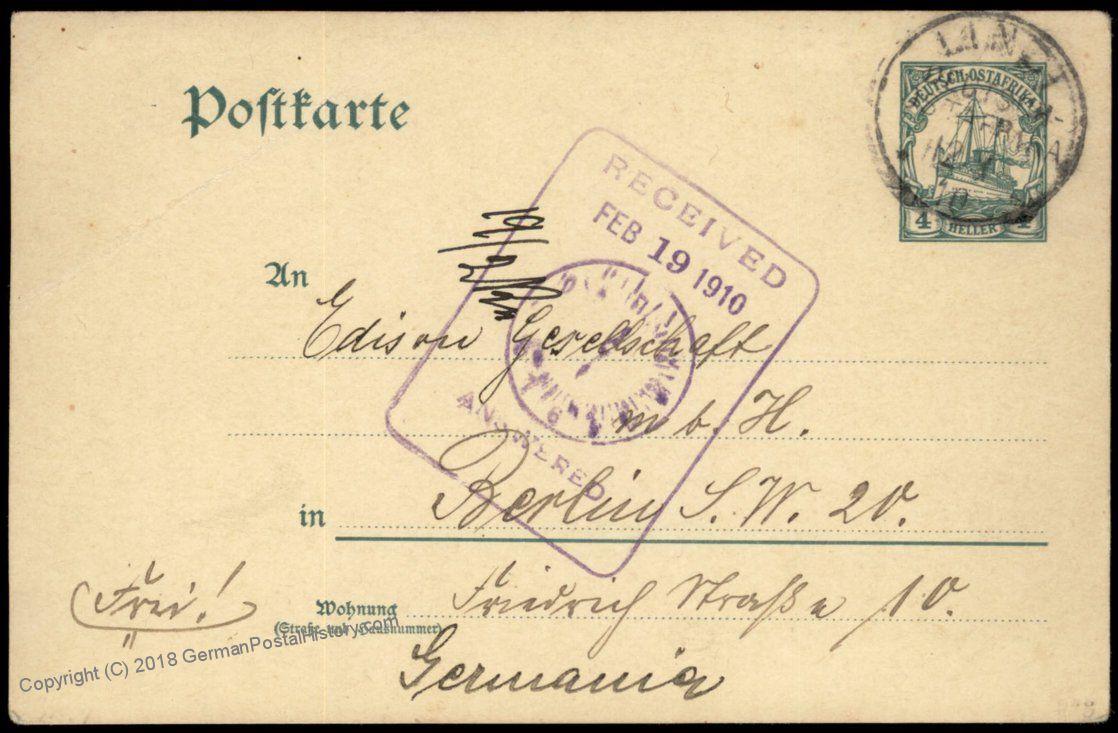 Postkarte
DEUTSCH-OSTAFRIKA
4 HELLER 4
RECEIVED
FEB 19 1910
ANSWERED
An
Edison Gesellschaft
m. b. H.
in Berlin S. W. 20.
Frei!
Wohnung Friedrich Straße 10.
(Straße und Hausnummer)
Germania
Copyright (C) 2018 GermanPostalHistory.com